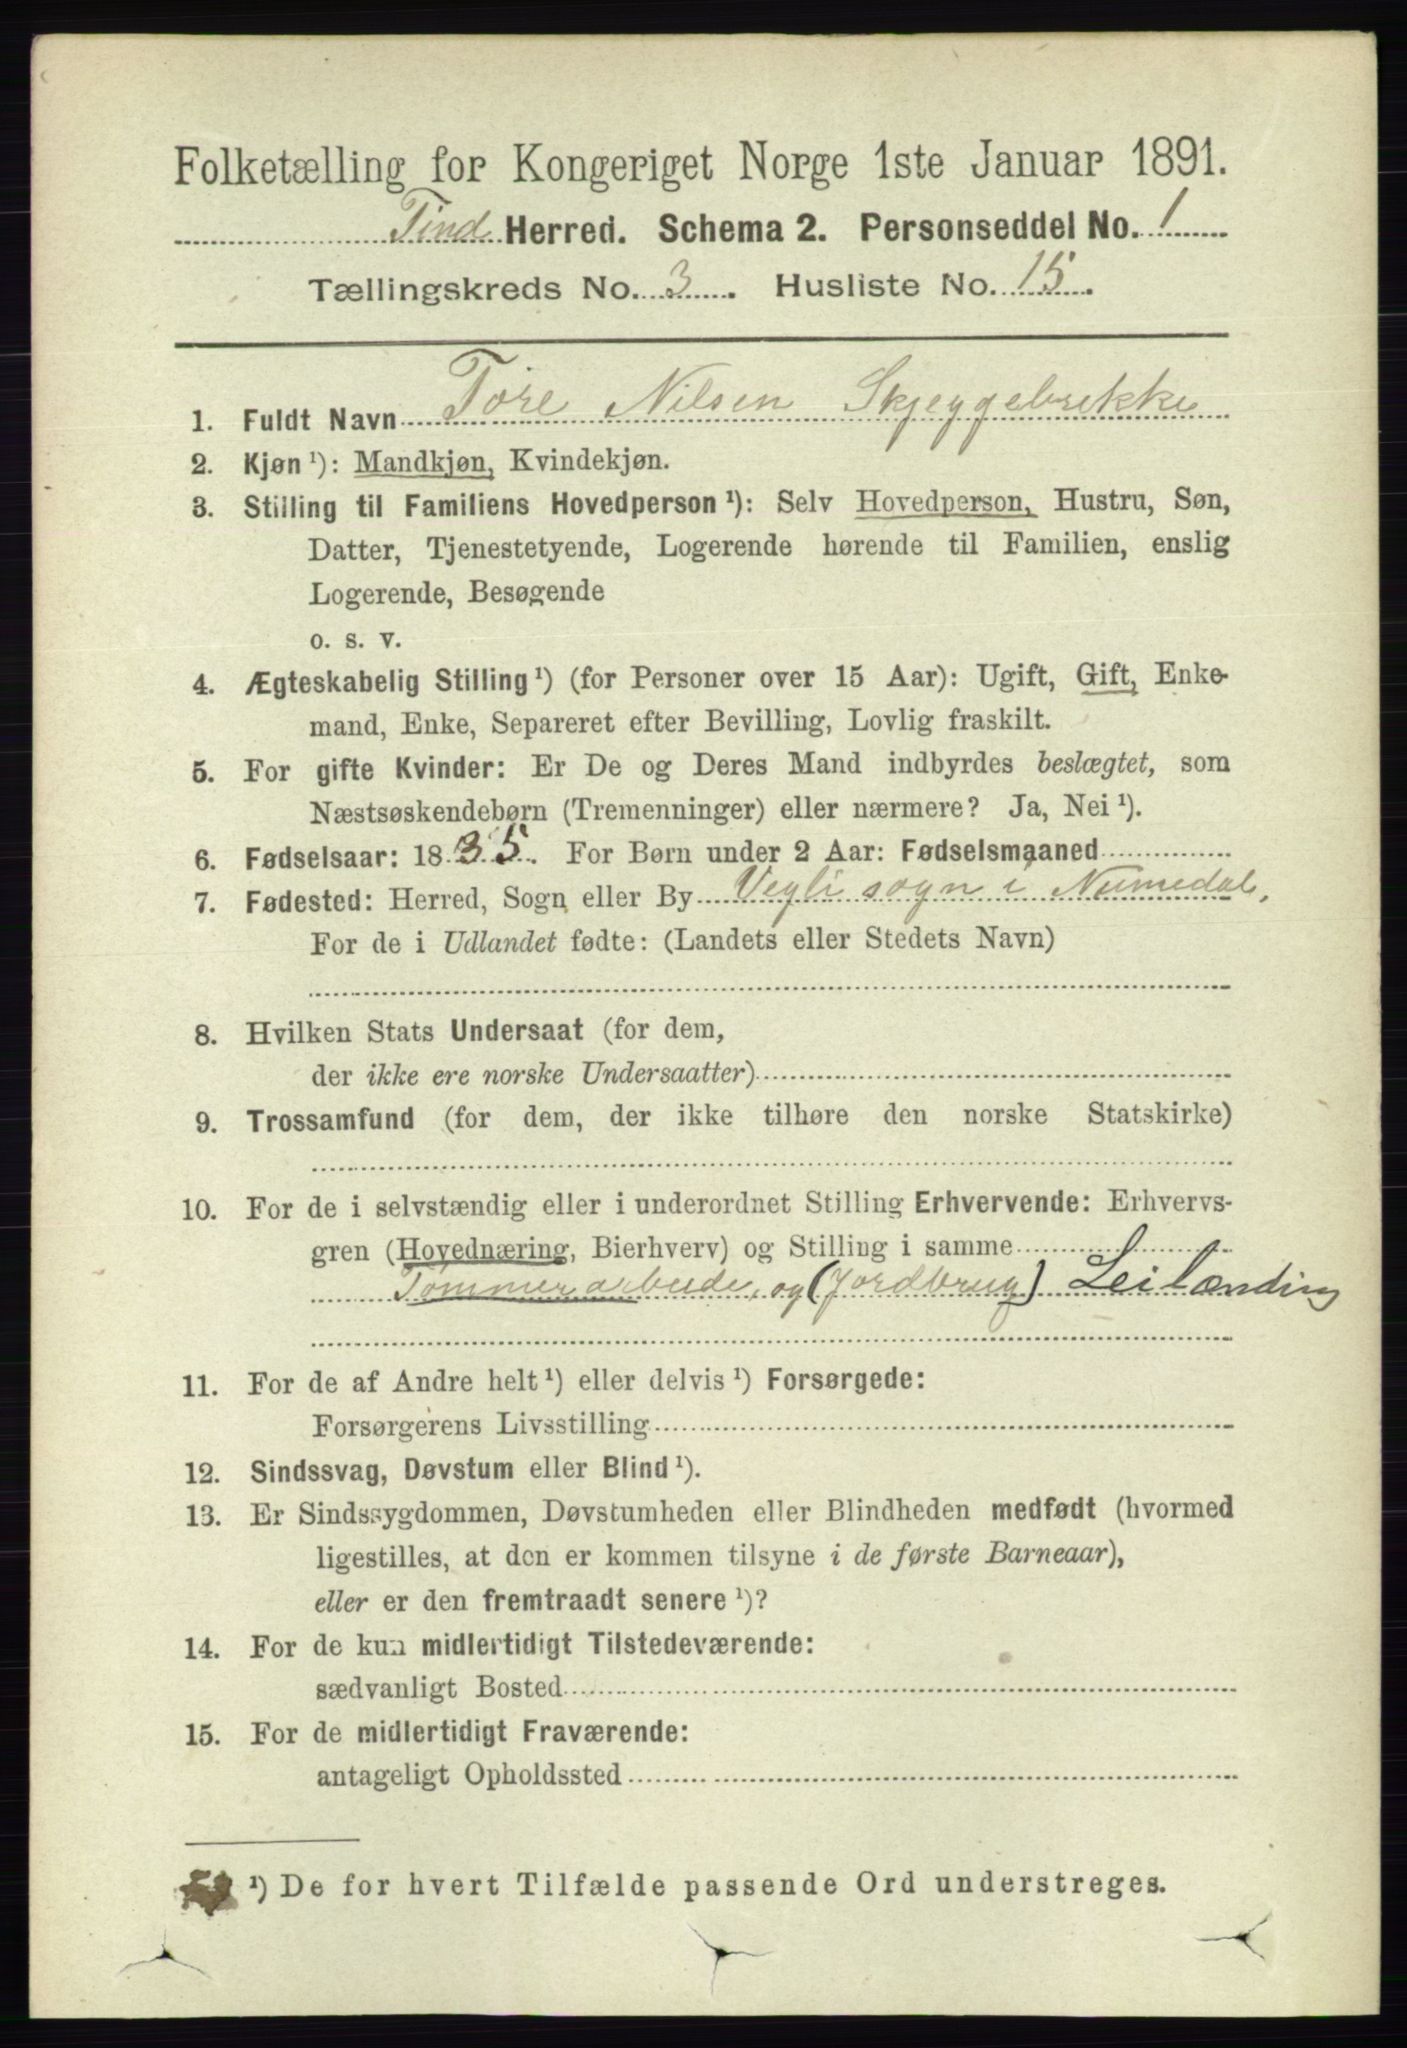 Folketælling for Kongeriget Norge 1ste Januar 1891.
Tind Herred. Schema 2. Personseddel No. 1
Tællingskreds No. 3. Husliste No. 15.
1. Fuldt Navn Tore Nilsen Skjeggebrekke
2. Kjøn ¹): Mandkjøn, Kvindekjøn.
3. Stilling til Familiens Hovedperson ¹): Selv Hovedperson, Hustru, Søn,
Datter, Tjenestetyende, Logerende hørende til Familien, enslig
Logerende, Besøgende
o. s. v.
4. Ægteskabelig Stilling ¹) (for Personer over 15 Aar): Ugift, Gift, Enke-
mand, Enke, Separeret efter Bevilling, Lovlig fraskilt.
5. For gifte Kvinder: Er De og Deres Mand indbyrdes beslægtet, som
Næstsøskendebørn (Tremenninger) eller nærmere? Ja, Nei ¹).
6. Fødselsaar: 1835. For Børn under 2 Aar: Fødselsmaaned
7. Fødested: Herred, Sogn eller By Vegli sogn i Numedal,
For de i Udlandet fødte: (Landets eller Stedets Navn)
8. Hvilken Stats Undersaat (for dem,
der ikke ere norske Undersaatter)
9. Trossamfund (for dem, der ikke tilhøre den norske Statskirke)
10. For de i selvstændig eller i underordnet Stilling Erhvervende: Erhvervs-
gren (Hovednæring, Bierhverv) og Stilling i samme
Tømmerarbeide, og (Jordbrug) Leilænding
11. For de af Andre helt ¹) eller delvis ¹) Forsørgede:
Forsørgerens Livsstilling
12. Sindssvag, Døvstum eller Blind ¹).
13. Er Sindssygdommen, Døvstumheden eller Blindheden medfødt (hvormed
ligestilles, at den er kommen tilsyne i de første Barneaar),
eller er den fremtraadt senere ¹)?
14. For de kun midlertidigt Tilstedeværende:
sædvanligt Bosted
15. For de midlertidigt Fraværende:
antageligt Opholdssted
¹) De for hvert Tilfælde passende Ord understreges.